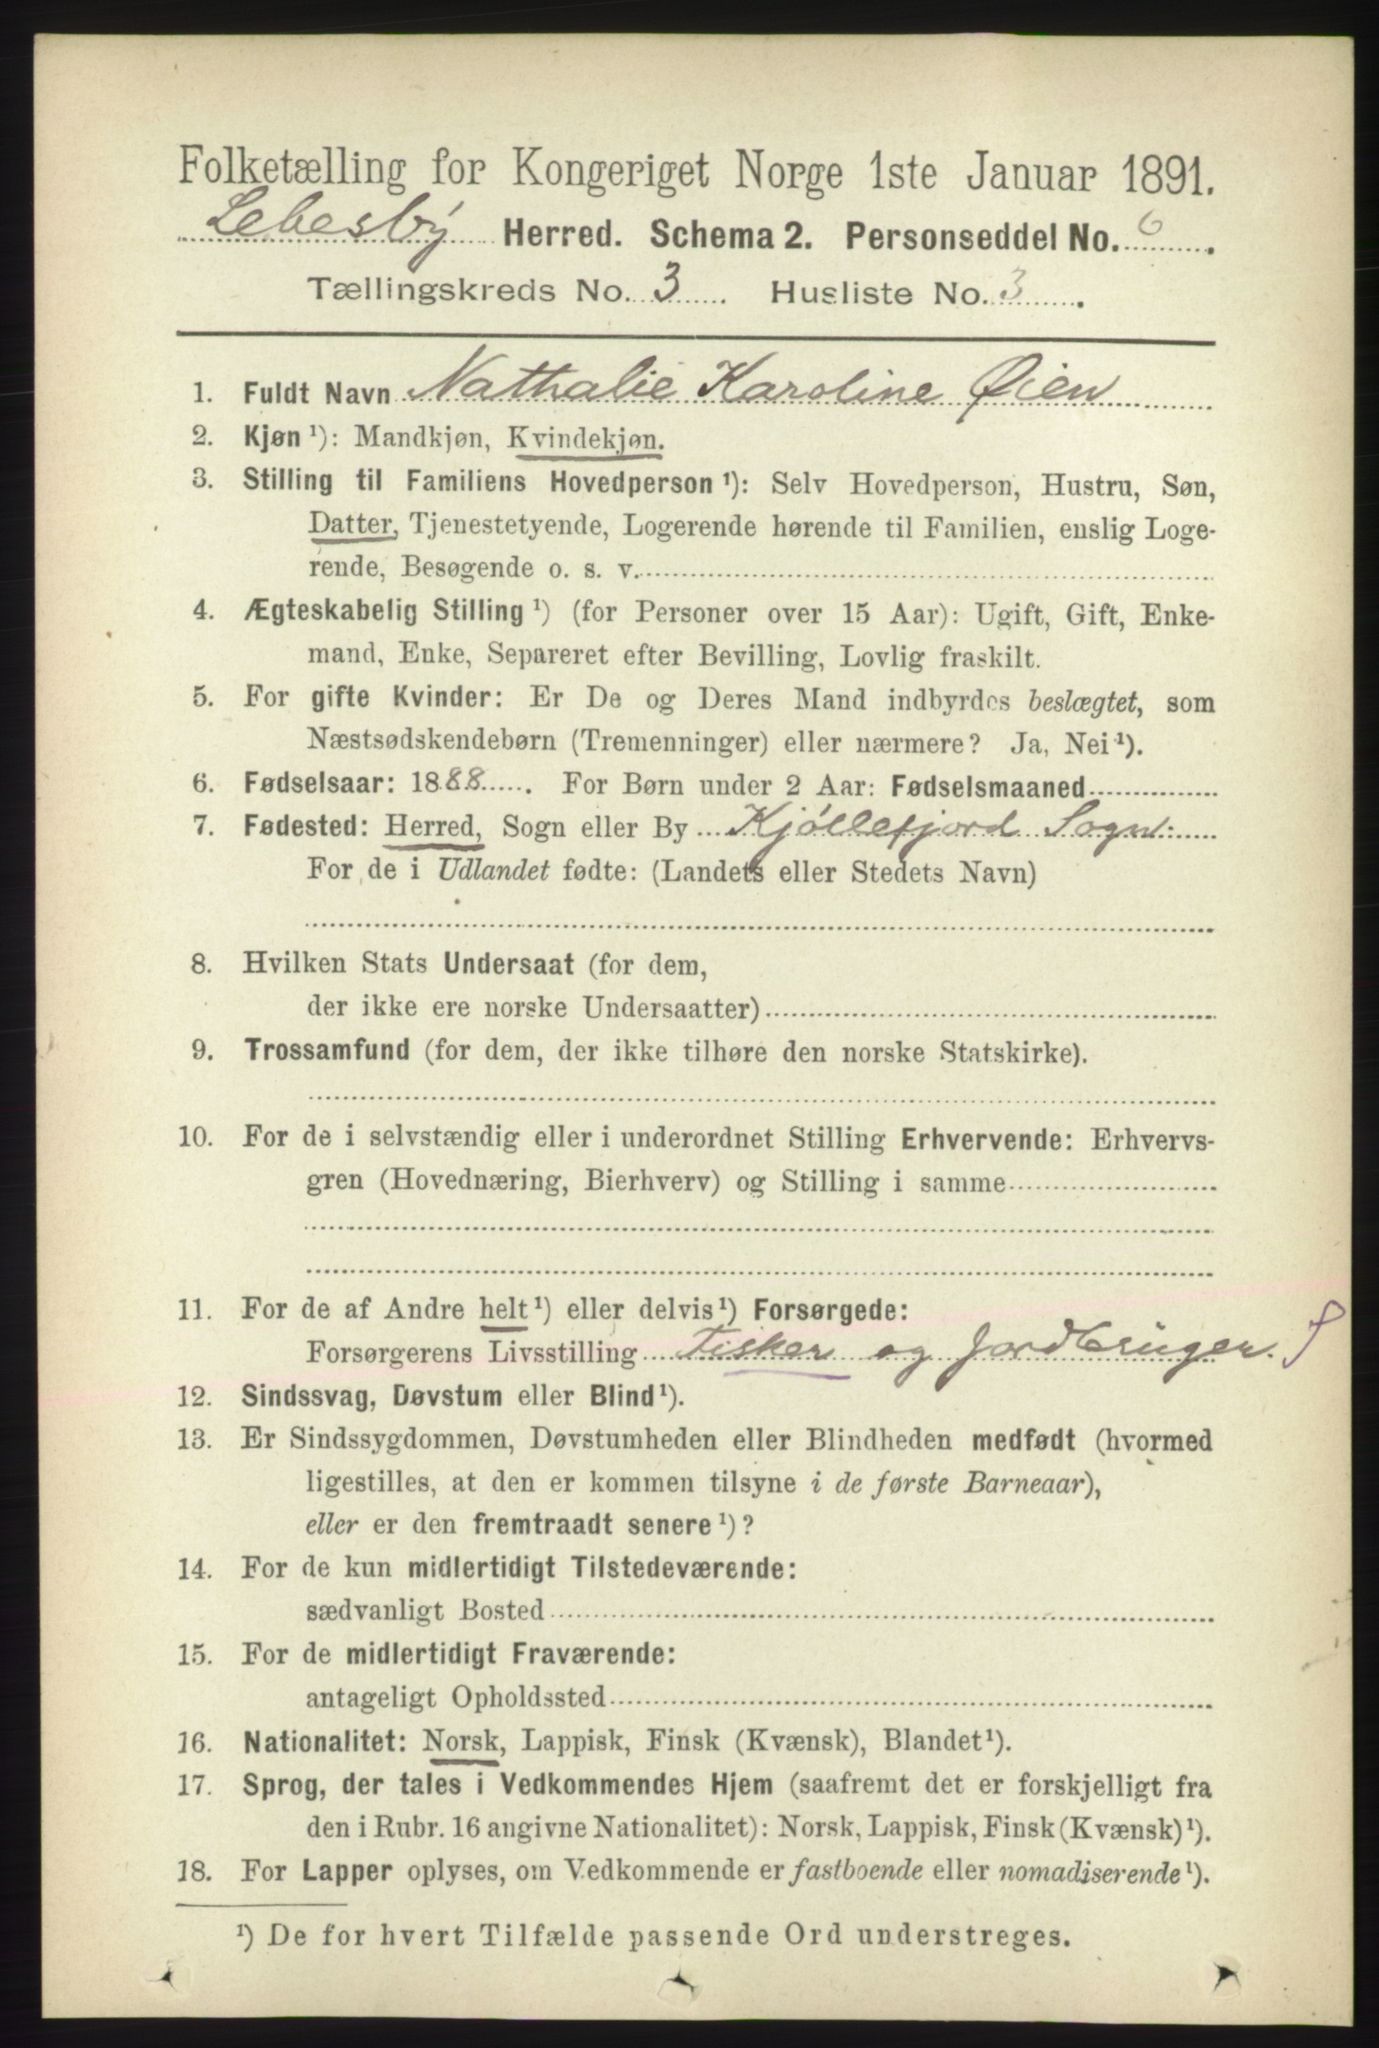 Folketælling for Kongeriget Norge 1ste Januar 1891.
Lebesby Herred. Schema 2. Personseddel No. 6.
Tællingskreds No. 3. Husliste No. 3.
1. Fuldt Navn Nathalie Karoline Øien
2. Kjøn ¹): Mandkjøn, Kvindekjøn.
3. Stilling til Familiens Hovedperson ¹): Selv Hovedperson, Hustru, Søn,
Datter, Tjenestetyende, Logerende hørende til Familien, enslig Loge-
rende, Besøgende o. s. v.
4. Ægteskabelig Stilling ¹) (for Personer over 15 Aar): Ugift, Gift, Enke-
mand, Enke, Separeret efter Bevilling, Lovlig fraskilt.
5. For gifte Kvinder: Er De og Deres Mand indbyrdes beslægtet, som
Næstsødskendebørn (Tremenninger) eller nærmere? Ja, Nei ¹).
6. Fødselsaar: 1888. For Børn under 2 Aar: Fødselsmaaned
7. Fødested: Herred, Sogn eller By Kjöllefjord Sogn
For de i Udlandet fødte: (Landets eller Stedets Navn)
8. Hvilken Stats Undersaat (for dem,
der ikke ere norske Undersaatter)
9. Trossamfund (for dem, der ikke tilhøre den norske Statskirke).
10. For de i selvstændig eller i underordnet Stilling Erhvervende: Erhvervs-
gren (Hovednæring, Bierhverv) og Stilling i samme
11. For de af Andre helt ¹) eller delvis ¹) Forsørgede:
Forsørgerens Livsstilling Fisker og Jordbruger.
12. Sindssvag, Døvstum eller Blind ¹).
13. Er Sindssygdommen, Døvstumheden eller Blindheden medfødt (hvormed
ligestilles, at den er kommen tilsyne i de første Barneaar),
eller er den fremtraadt senere ¹)?
14. For de kun midlertidigt Tilstedeværende:
sædvanligt Bosted
15. For de midlertidigt Fraværende:
antageligt Opholdssted
16. Nationalitet: Norsk, Lappisk, Finsk (Kvænsk), Blandet ¹).
17. Sprog, der tales i Vedkommendes Hjem (saafremt det er forskjelligt fra
den i Rubr. 16 angivne Nationalitet): Norsk, Lappisk, Finsk (Kvænsk) ¹).
18. For Lapper oplyses, om Vedkommende er fastboende eller nomadiserende ¹).
¹) De for hvert Tilfælde passende Ord understreges.